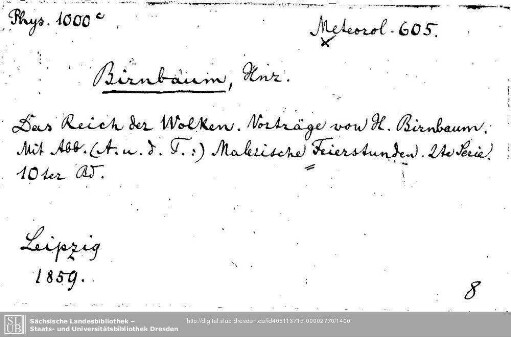 Phys. 1000 c
Meteorol. 605.
Birnbaum, Hnr.
Das Reich der Wolken. Vorträge von H. Birnbaum.
Mit Abb. (A. u. d. T.:) Malerische Feierstunden. 2te Serie.
10ter Bd.
Leipzig
1859.
8
SLUB
Sächsische Landesbibliothek –
Staats- und Universitätsbibliothek Dresden